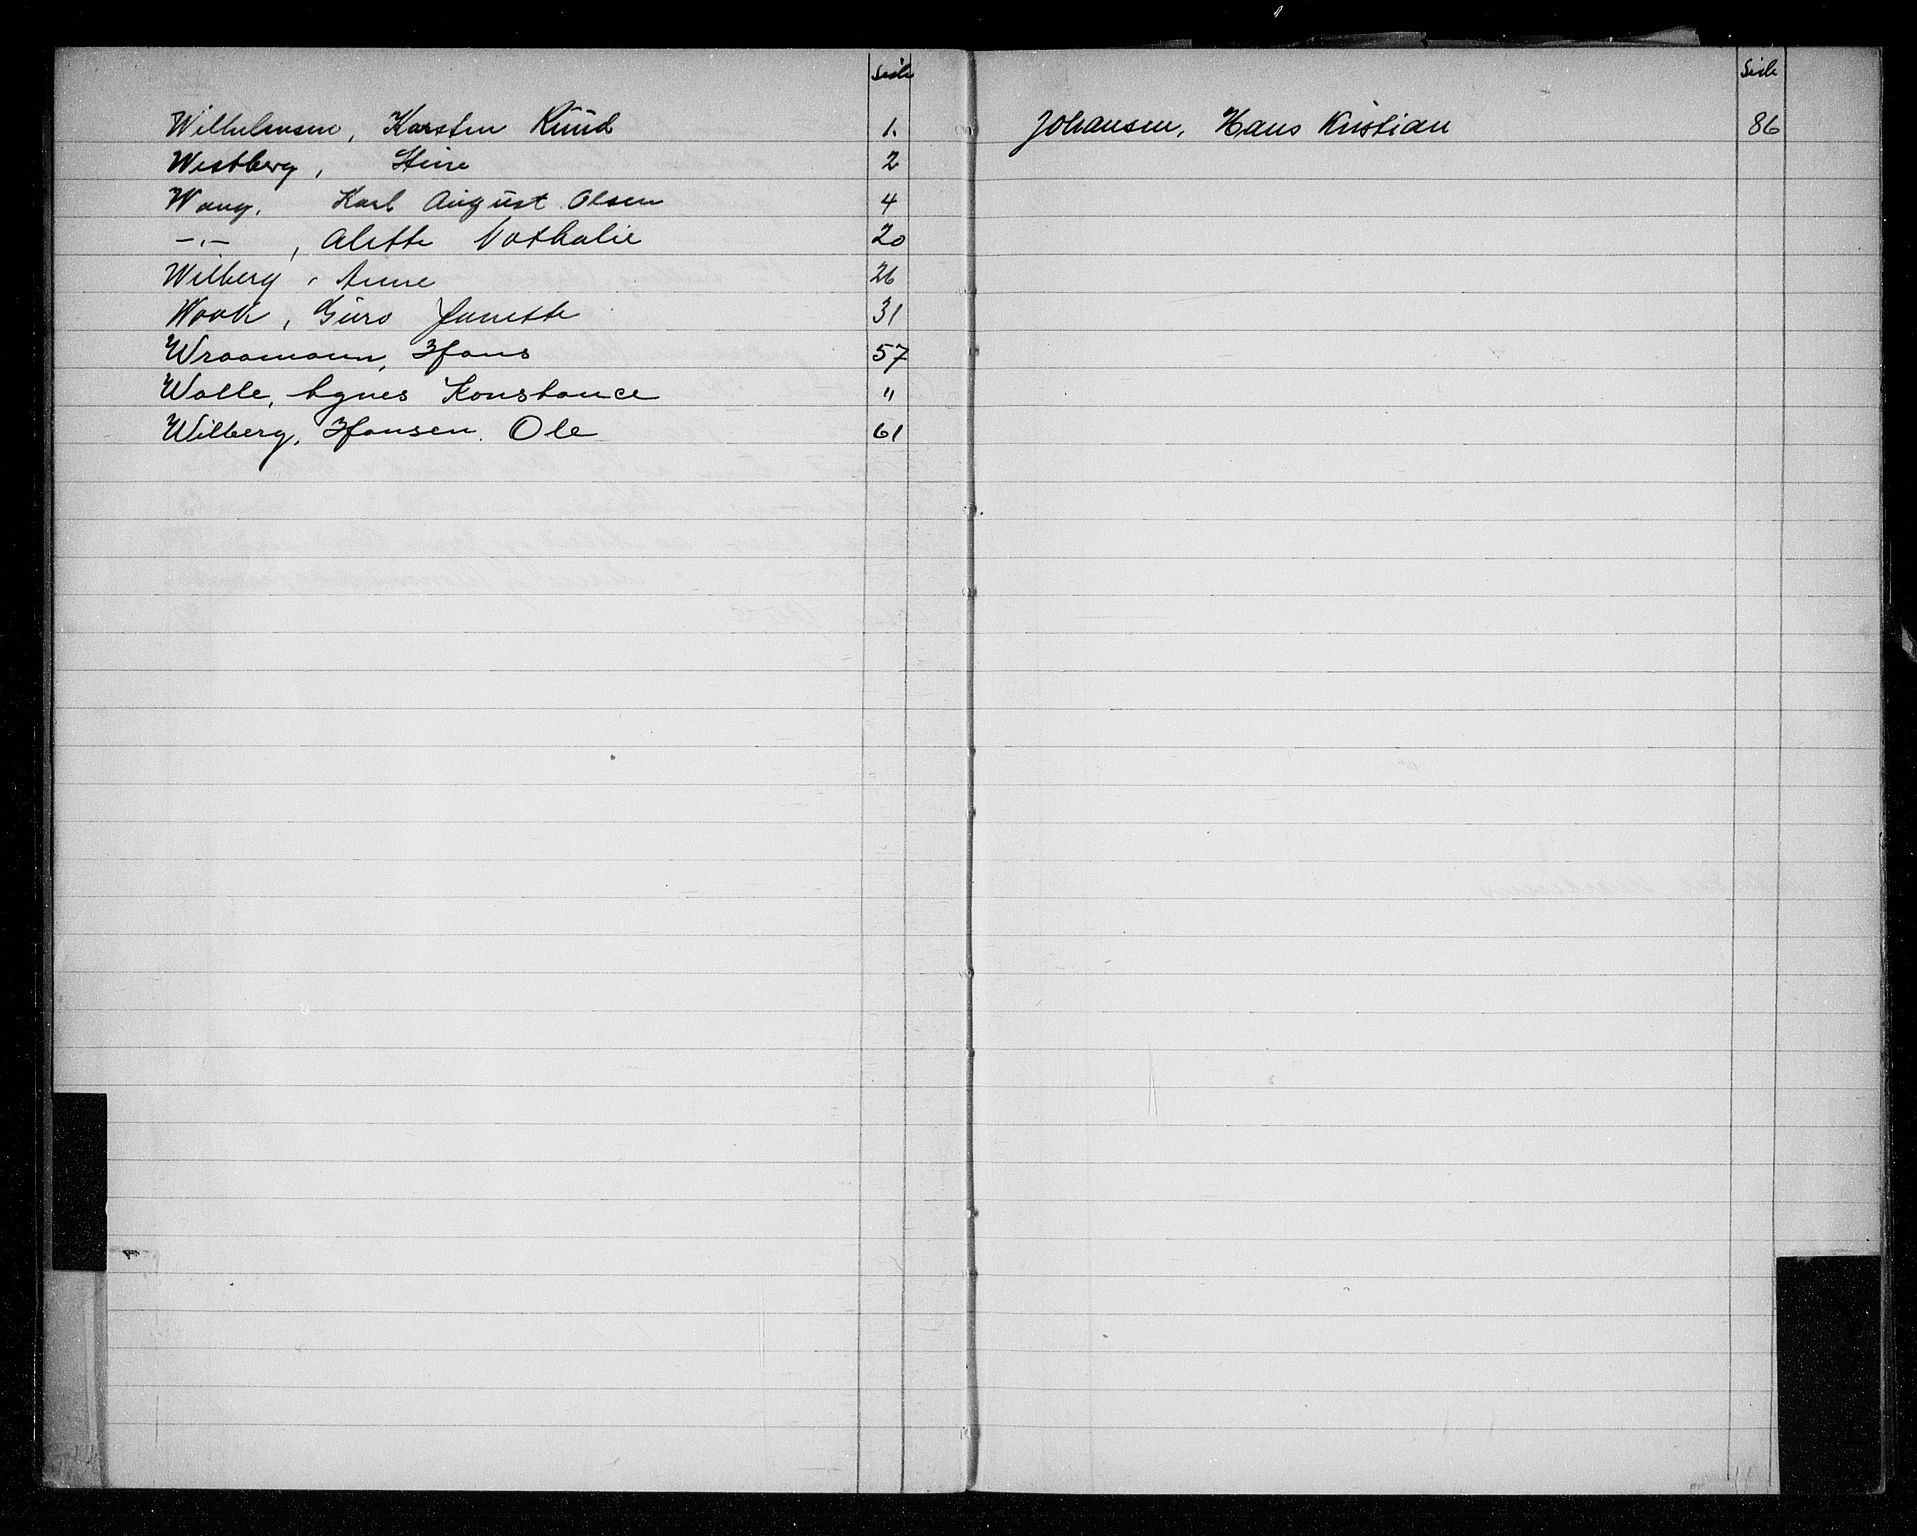 Side
Wilhelmsen, Karsten Ruud 1.
Westberg, Stine 2
Wang, Karl August Olsen 4
—"—, Alette Nathalie 20
Wilberg, Anne 26
Wook, Guro Janette 31
Wraamann, Hans 57
Walle, Agnes Konstance "
Wilberg, Hansen, Ole 61
Side
Johansen, Hans Kristian 86